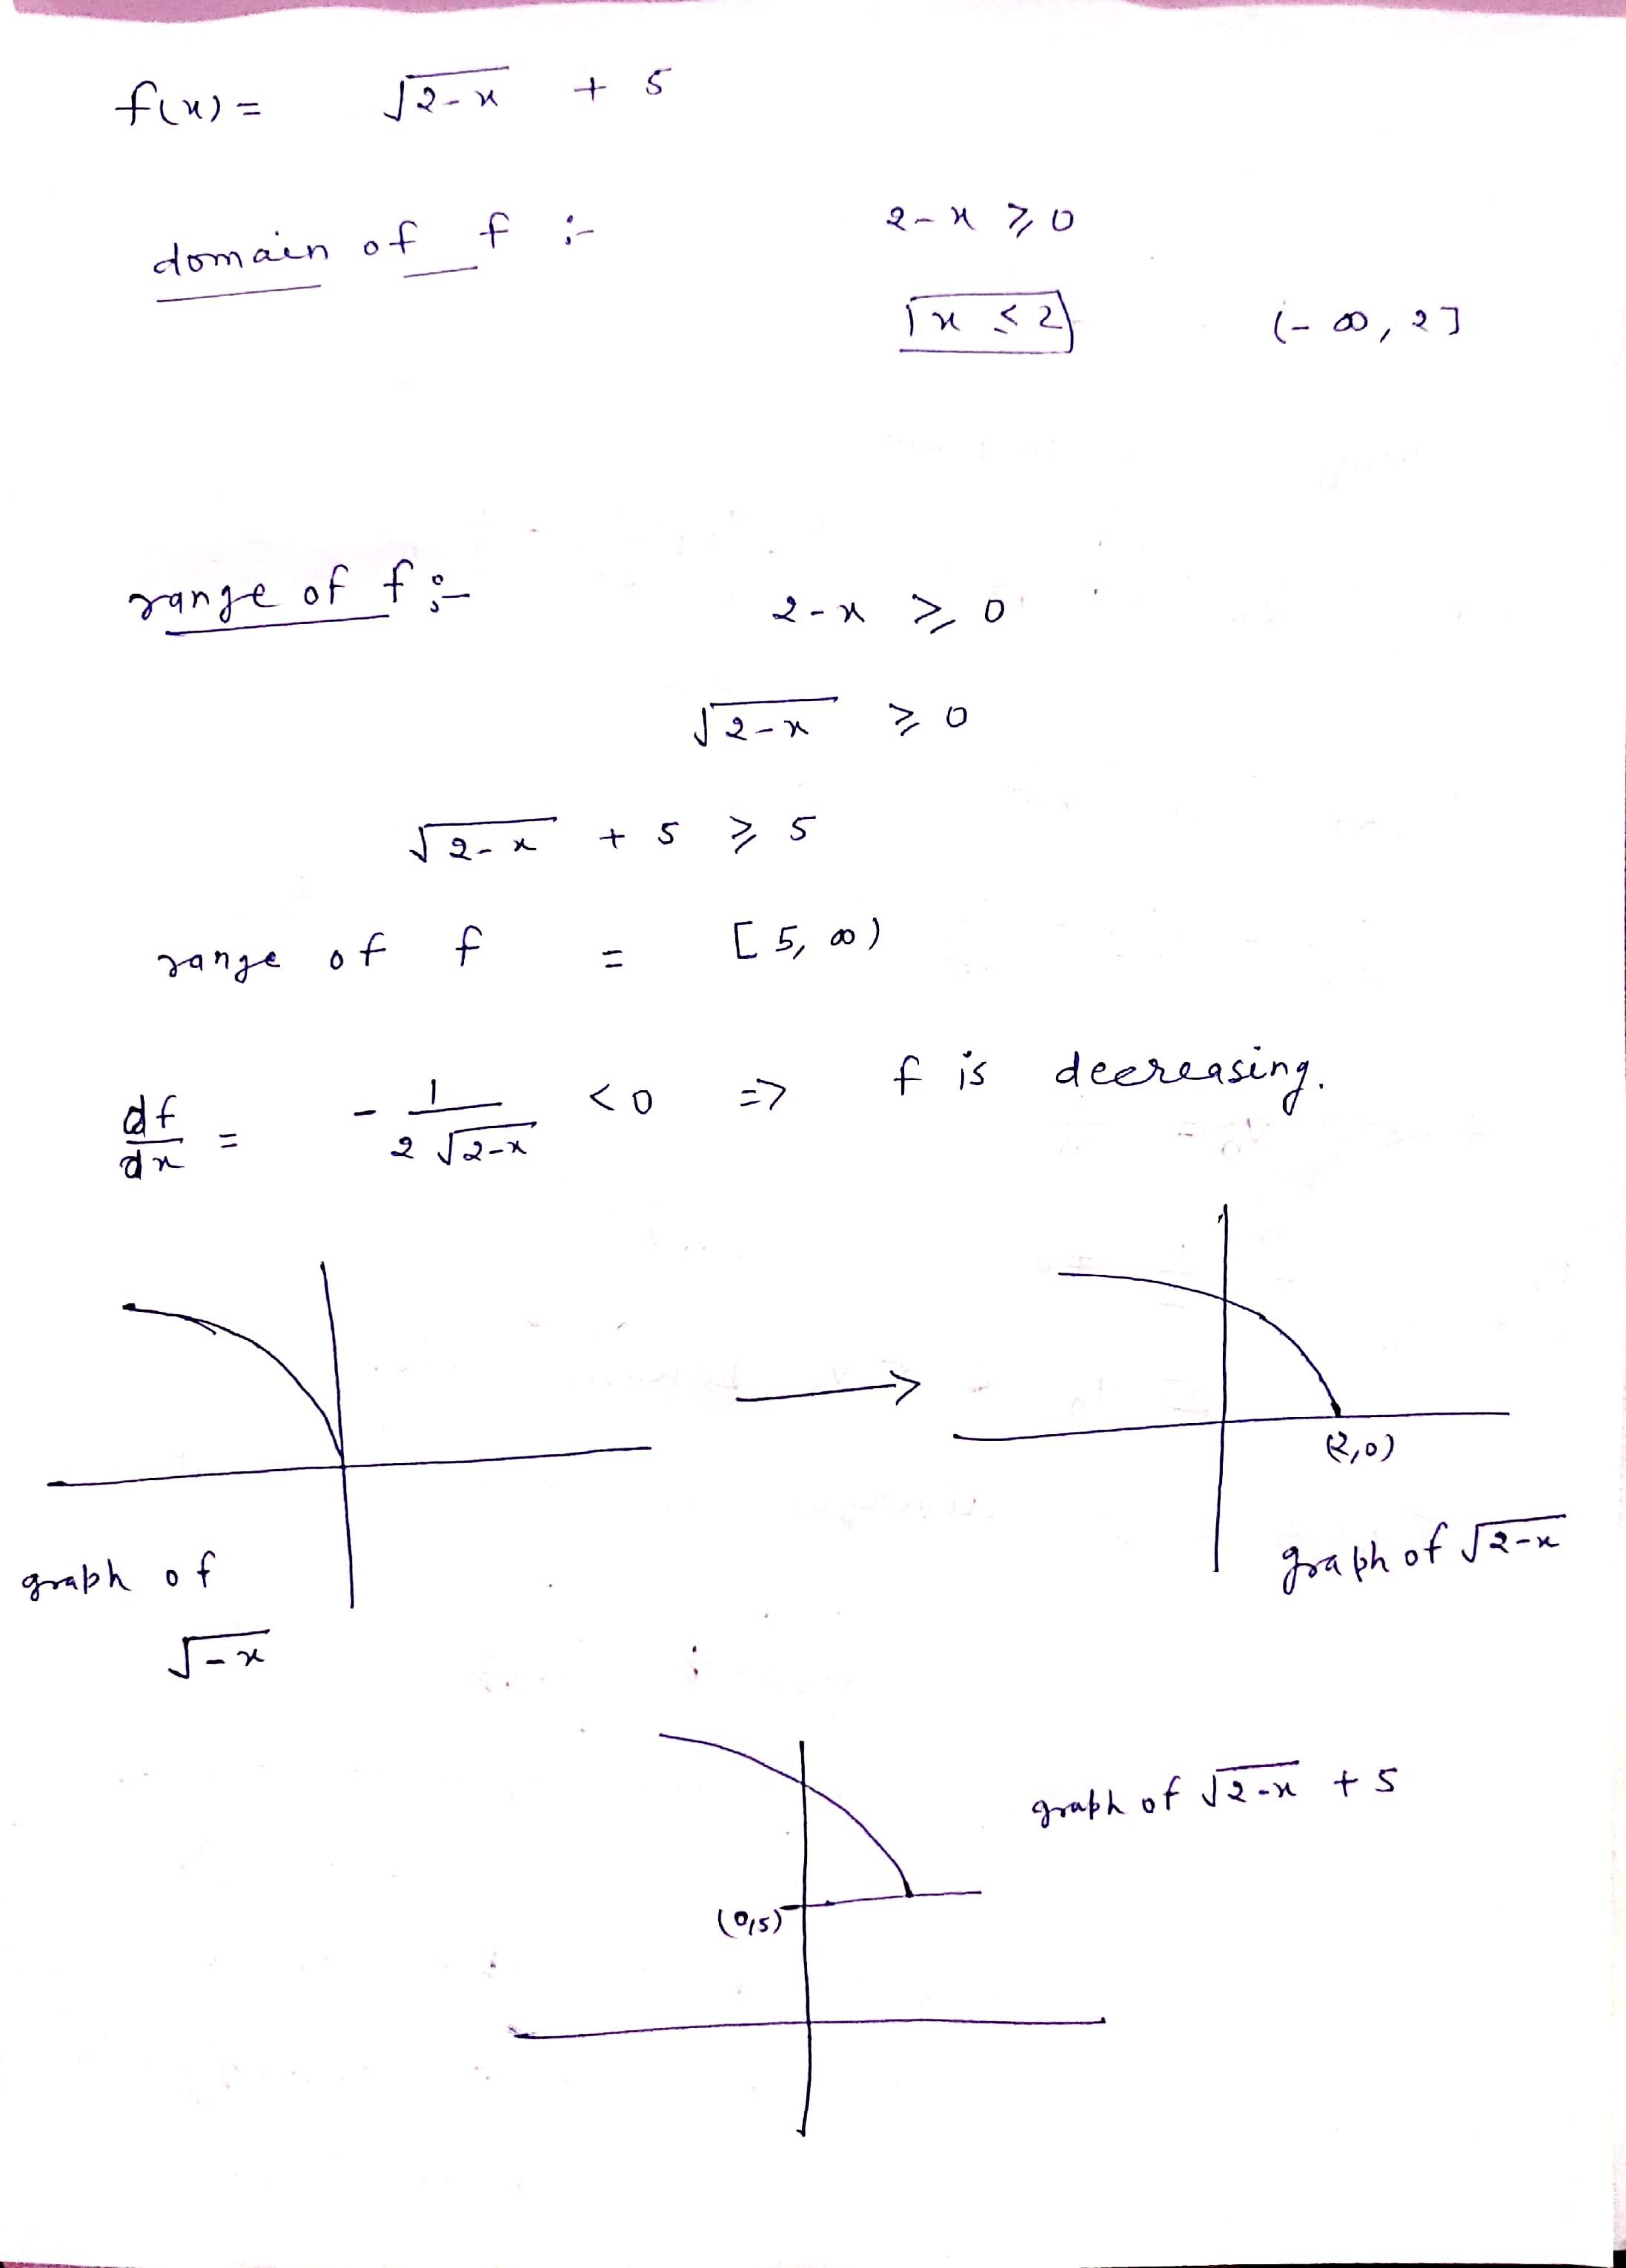 f(x) = √2-x + 5
domain of f :-
2-x ⩾ 0
x ≤ 2
(-∞, 2]
range of f :-
2-x ⩾ 0
√2-x ⩾ 0
√2-x + 5 ⩾ 5
range of f = [5, ∞)
df/dx = - 1/2√2-x < 0 => f is decreasing.
(2,0)
graph of √2-x
graph of
√-x
graph of √2-x + 5
(0,5)